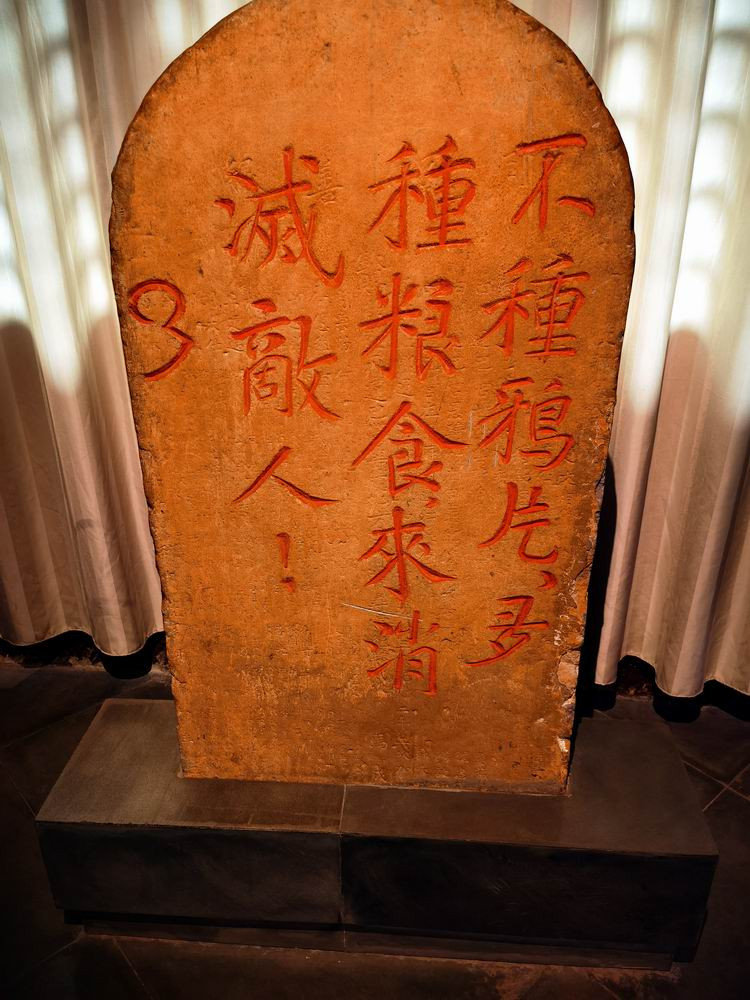 不種鴉片、多
種粮食來消
滅敵人！
3